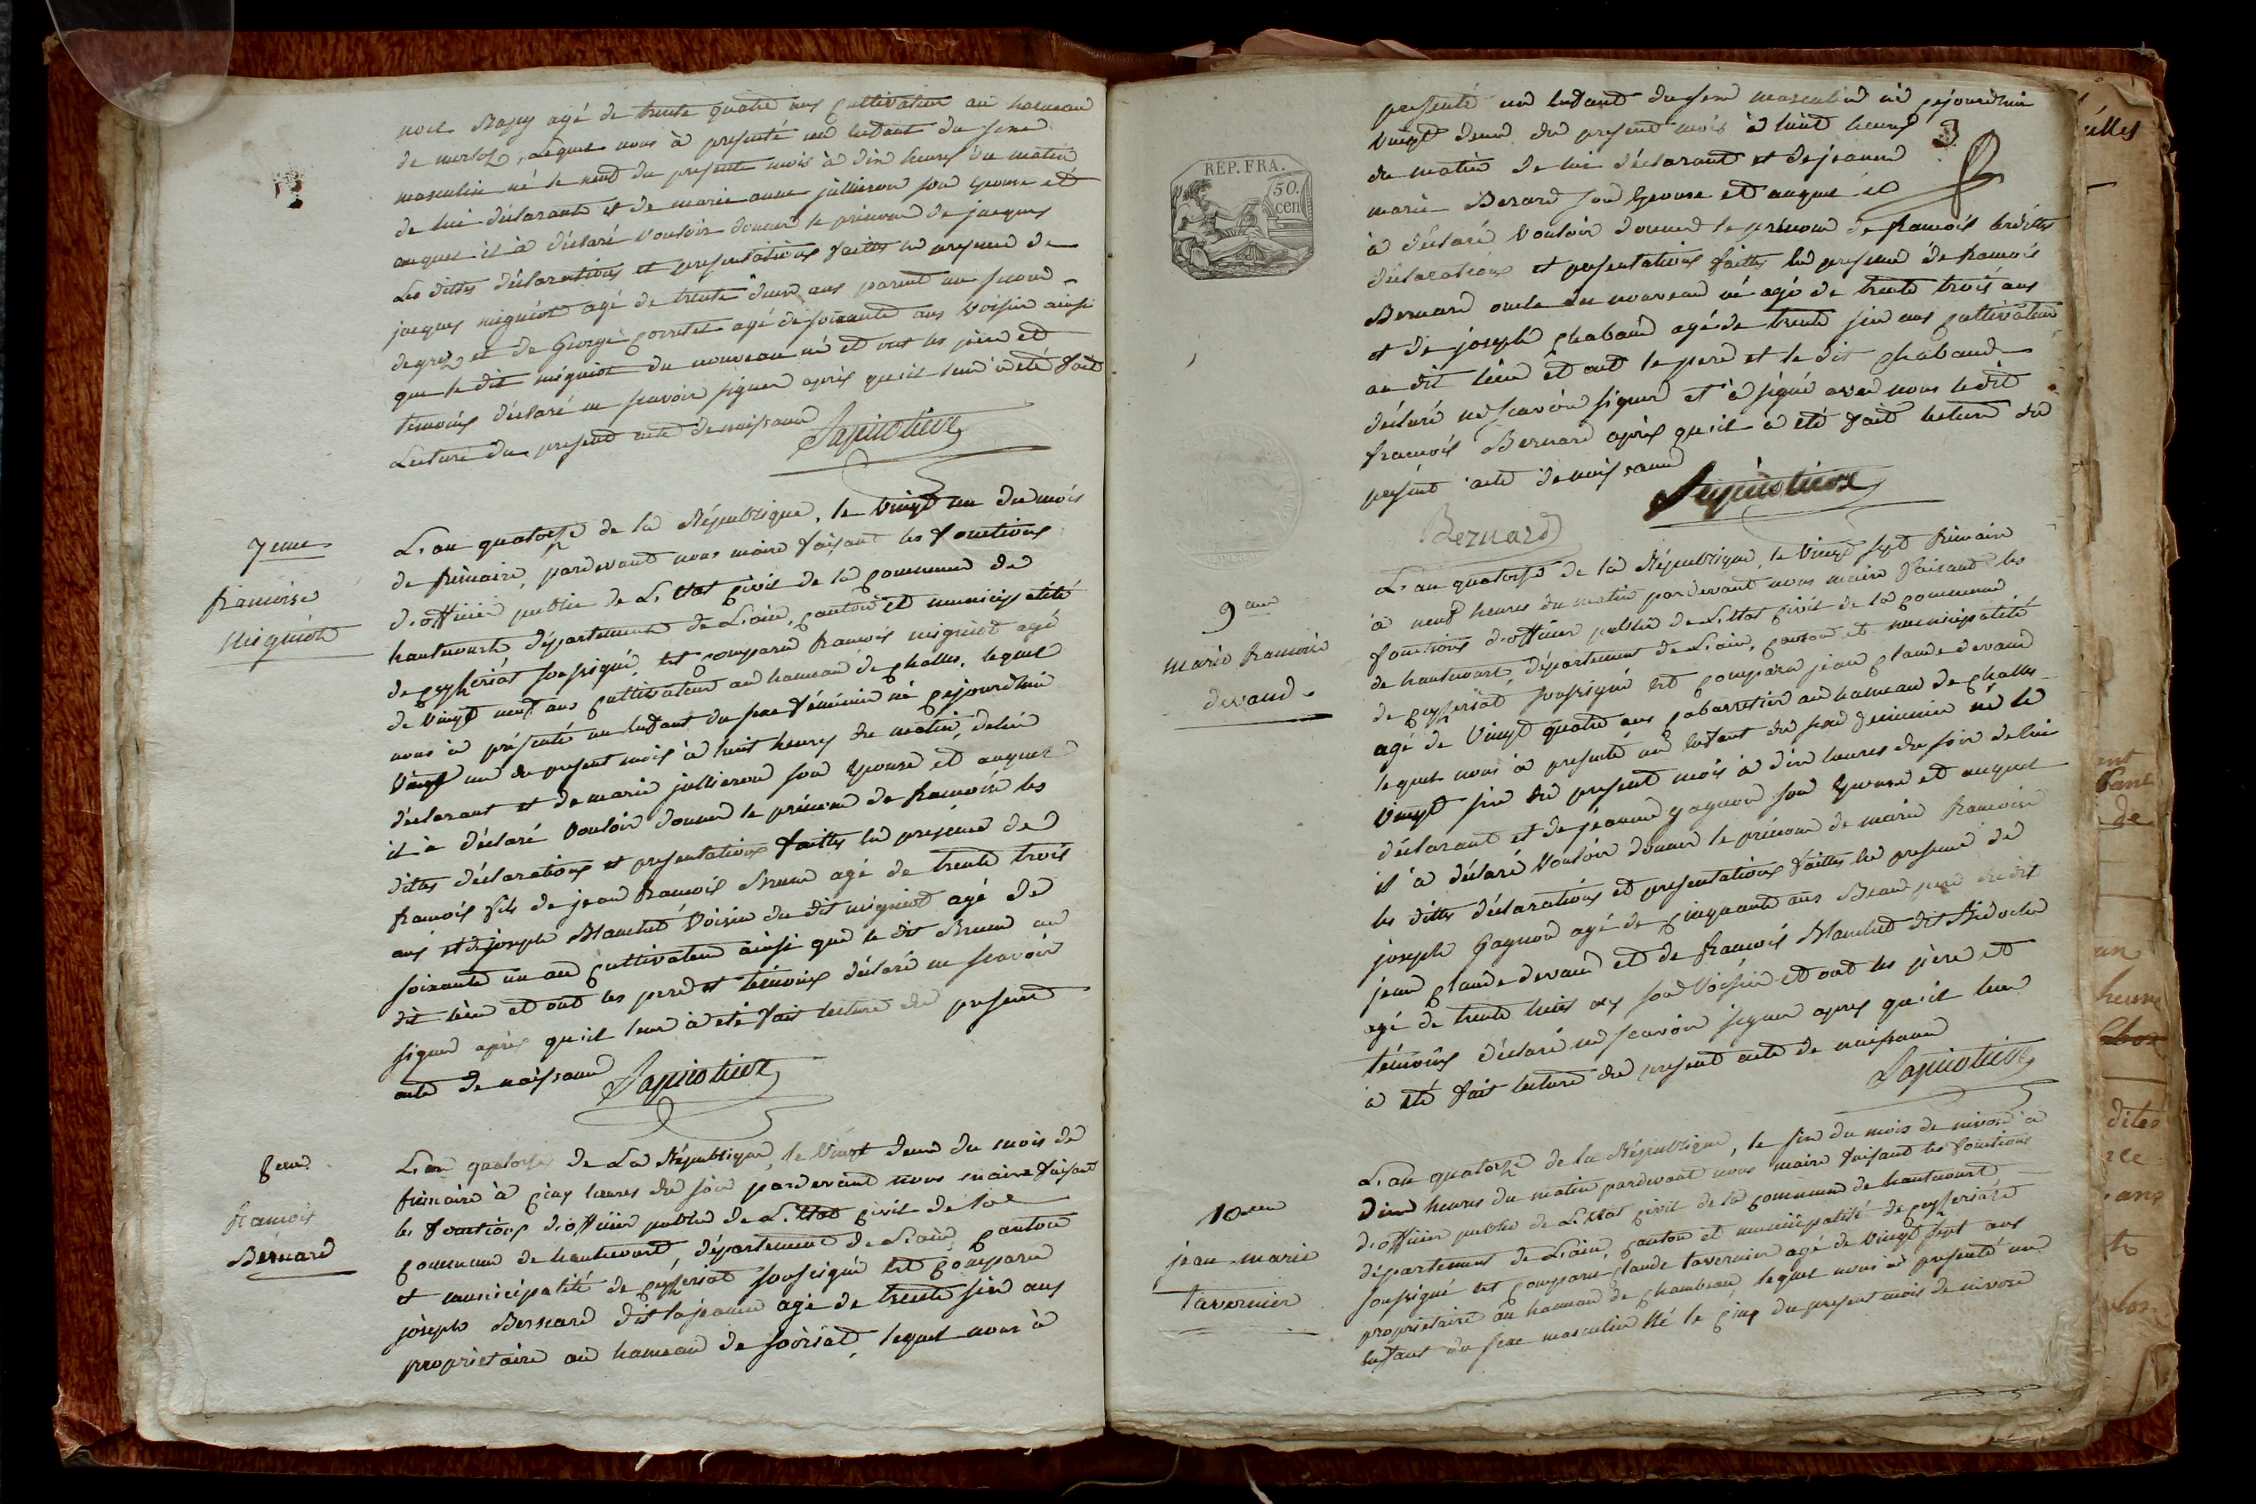 noel agé de trente quatre ans cultivateur au hameau
de merloz, lequel nous à presenté un enfant du sexe
masculin né le neuf du present mois à dix heures du matin
de lui déclarant et de marie anne jullieron son Epouse et
auquel il à déclaré vouloir donner le prénom de jacques
Les dittes déclarations et presentations faittes en presence de
jacques migniot agé de trente deux ans parent au second
degrez et de George agé de soixante ans voisin ainsi
que le dit migniot du nouveau né et ont les père et
témoins déclaré ne scavoir signer après qu'il leur à été fait
Lecture du present acte de naissance
7eme
francoise
Migniot
L'an quatorze de la République, le vingt un du mois
de frimaire, pardevant nous maire faisant les fonctions
d'officier public de L'Etat civil de la commune de
hautecourt département de L'ain, canton et municipalité
de ceyzeriat soussigné est comparu francois migniot agé
de vingt neuf ans cultivateur au hameau de challes, lequel
nous à présenté un enfant du sexe féminin né cejourd'hui
vingt un du present mois à huit heures du matin, de lui
déclarant et de marie jullieron son Epouse et auquel
il à déclaré vouloir donner le prénom de francoise les
dittes déclarations et presentations faittes en presence de
francois fils de jean francois Brun agé de trente trois
ans et de joseph Blanchet voisin du dit migniot agé de
soixante un an cultivateur ainsi que le dit Brun au
dit lieu et ont les pere et témoins déclaré ne scavoir
signer après qu'il leur à été fait lecture du present
acte de naissance
8eme
francois
Bernard
L'an quatorze de La République, le vingt deux du mois de
frimaire à cinq heures du soir pardevant nous maire faisant
les fonctions d'officier public de L'Etat civil de la
commune de hautecourt, département de L'ain, canton
et municipalité de ceyzeriat soussigné est comparu
joseph Bernard dit lajeanne agé de trente six ans
proprietaire au hameau de soiriat, lequel nous à
REP. FRA.
50.
cen
presenté un enfant du sexe masculin né cejourd'hui
vingt deux du present mois à huit heures
du matin de lui déclarant et de jeanne
marie Berard son Epouse et auquel il
à déclaré vouloir donner le prénom de francois lesdittes
déclarations et presentations faittes en presence de francois
Bernard oncle du nouveau né agé de trente trois ans
et de joseph chaband agé de trente six ans cultivateur
au dit lieu et ont le pere et le dit chaband
déclaré ne scavoir signer et à signé avec nous ledit
francois Bernard après qu'il à été fait lecture du
present acte de naissance
Bernard
9eme
marie francoise
devaud
L'an quatorze de la République, le vingt sept frimaire
à neuf heures du matin pardevant nous maire faisant les
fonctions d'officier public de L'Etat civil de la commune
de hautecourt, département de L'ain, canton et municipalité
de ceyzeriat soussigné est comparu jean claude devaud
agé de vingt quatre ans cabarretier au hameau de challes
lequel nous à presenté un enfant du sexe feminin né le
vingt six du present mois à dix heures du soir de lui
déclarant et de jeanne gagnon son Epouse et auquel
il à déclaré vouloir donner le prénom de marie francoise
les dittes déclarations et presentations faittes en presence de
joseph Gagnon agé de cinquante ans Beau pere du dit
jean claude devaud et de francois Blanchet dit
agé de trente huit ans son voisin et ont les père et
témoins déclaré ne scavoir signer apres qu'il leur
à été fait lecture du present acte de naissance
10eme
jean marie
tavernier
L'an quatorze de la République, le six du mois de nivose à
dix heures du matin pardevant nous maire faisant les fonctions
d'officier public de L'Etat civil de la commune de hautecourt
département de L'ain, canton et municipalité de ceyzeriat
soussigné est comparu claude tavernier agé de vingt sept ans
proprietaire au hameau de chambeau, lequel nous à presenté un
enfant du sexe masculin né le cinq du present mois de nivose